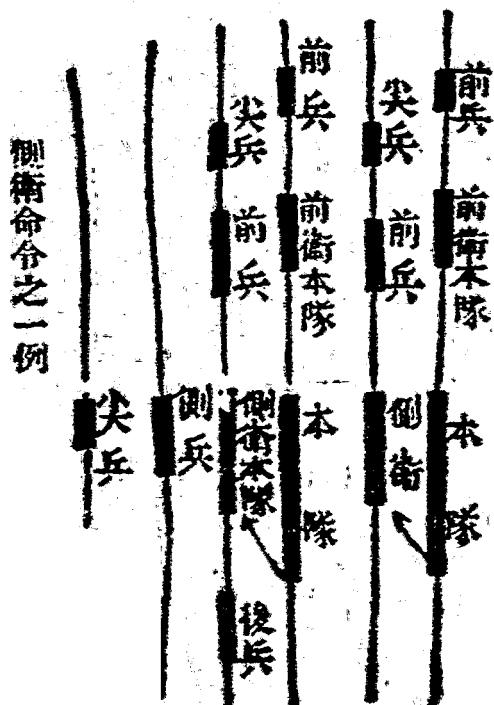 前兵
前衛本隊
本隊
尖兵
前兵
側衛
前兵
前衛本隊
本隊
尖兵
前兵
側衛本隊
後兵
側兵
尖兵
側衛命令之一例